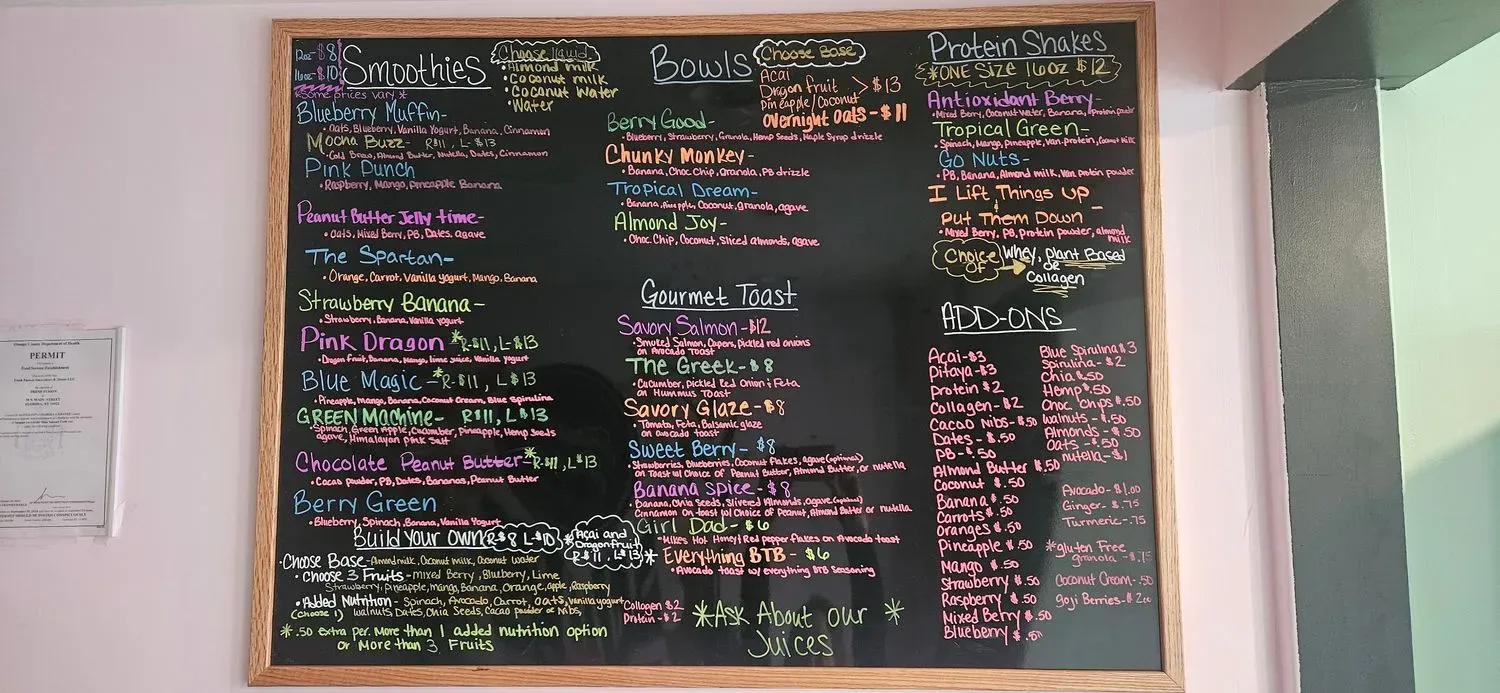 12oz-$8
16oz-$10
*Some prices vary*
Smoothies
Choose liquid
•Almond milk
•Coconut milk
•Coconut Water
•Water
Blueberry Muffin-
•Oats, Blueberry, Vanilla Yogurt, Banana, Cinnamon
Mocha Buzz- R-$11, L-$13
•Cold Brew, Almond Butter, Nutella, Dates, Cinnamon
Pink Punch
•Raspberry, Mango, Pineapple Banana
Peanut Butter Jelly time-
•Oats, Mixed Berry, PB, Dates, agave
The Spartan-
•Orange, Carrot, Vanilla Yogurt, Mango, Banana
Strawberry Banana-
•Strawberry, Banana, Vanilla yogurt
Pink Dragon *R-$11, L-$13
•Dragon fruit, Banana, Mango, lime juice, Vanilla yogurt
Blue Magic-*R-$11, L$13
•Pineapple, Mango, Banana, Coconut Cream, Blue Spirulina
GREEN Machine- R$11, L$13
•Spinach, Green Apple, Cucumber, Pineapple, Hemp Seeds
agave, Himalayan Pink Salt
Chocolate Peanut Butter-*R-$11, L$13
•Cacao powder, PB, Dates, Bananas, Peanut Butter
Berry Green
•Blueberry, Spinach, Banana, Vanilla Yogurt
Build Your Own R-$8 L-$10
*Acai and
Dragonfruit
R$11 L$13*
•Choose Base-Almond milk, Coconut milk, Coconut water
•Choose 3 Fruits-mixed Berry, Blueberry, Lime
Strawberry, Pineapple, Mango, Banana, Orange, apple, Raspberry
•Added Nutrition- Spinach, Avocado, Carrot, oats, Vanilla yogurt
(choose 1) walnuts, Dates, Chia Seeds, Cacao powder or Nibs,
Collagen $2
Protein-$2
*.50 Extra per. More than 1 added nutrition option
or More than 3 Fruits
Bowls
Choose Base
Acai
Dragon fruit
Pineapple/Coconut
> $13
Overnight Oats-$11
Berry Good-
•Blueberry, Strawberry, Granola, Hemp Seeds, Maple Syrup drizzle
Chunky Monkey-
•Banana, Choc Chip, Granola, PB drizzle
Tropical Dream-
•Banana, Pineapple, Coconut, granola, agave
Almond Joy-
•Choc Chip, Coconut, Sliced almonds, agave
Gourmet Toast
Savory Salmon-$12
•Smoked Salmon, Capers, Pickled red onions
on Avocado Toast
The Greek-$8
•Cucumber, pickled Red Onion & Feta
on Hummus Toast
Savory Glaze-$8
•Tomato, Feta, Balsamic glaze
on avocado toast
Sweet Berry-$8
•Strawberries, Blueberries, Coconut flakes, agave (optional)
on Toast w/ Choice of Peanut Butter, Almond Butter, or nutella
Banana Spice-$8
•Banana, Chia Seeds, Slivered Almonds, agave (optional)
Cinnamon on toast w/ Choice of Peanut, Almond Butter or nutella
Girl Dad-$6
•Mikes Hot Honey & Red pepper flakes on Avocado toast
Everything BTB-$6
•Avocado toast w/ everything BTB Seasoning
*Ask About our *
Juices
Protein Shakes
*ONE SIZE 16oz $12
Antioxidant Berry-
•Mixed Berry, Coconut Water, Banana, Protein powder
Tropical Green-
•Spinach, Mango, Pineapple, Van.protein, Coconut Milk
Go Nuts-
•PB, Banana, Almond milk, Van protein powder
I Lift Things Up
&
Put Them Down-
•Mixed Berry, PB, Protein powder, almond
milk
Choice
OF
Whey, Plant Based
OR
Collagen
ADD-ONS
Acai-$3
Pitaya-$3
Protein $2
Collagen-$2
Cacao Nibs-$.50
Dates-$.50
PB-$.50
Almond Butter $.50
Coconut $.50
Banana $.50
Carrots $.50
Oranges $.50
Pineapple $.50
Mango $.50
Strawberry $.50
Raspberry $.50
Mixed Berry $.50
Blueberry $.50
Blue Spirulina $3
Spirulina $2
Chia $.50
Hemp $.50
Choc. Chips $.50
walnuts-$.50
Almonds-$.50
Oats-$.50
nutella-$1
Avocado-$1.00
Ginger-$.75
Turmeric-.75
*gluten Free
granola-$.75
Coconut Cream-.50
goji Berries-$2.00
PERMIT